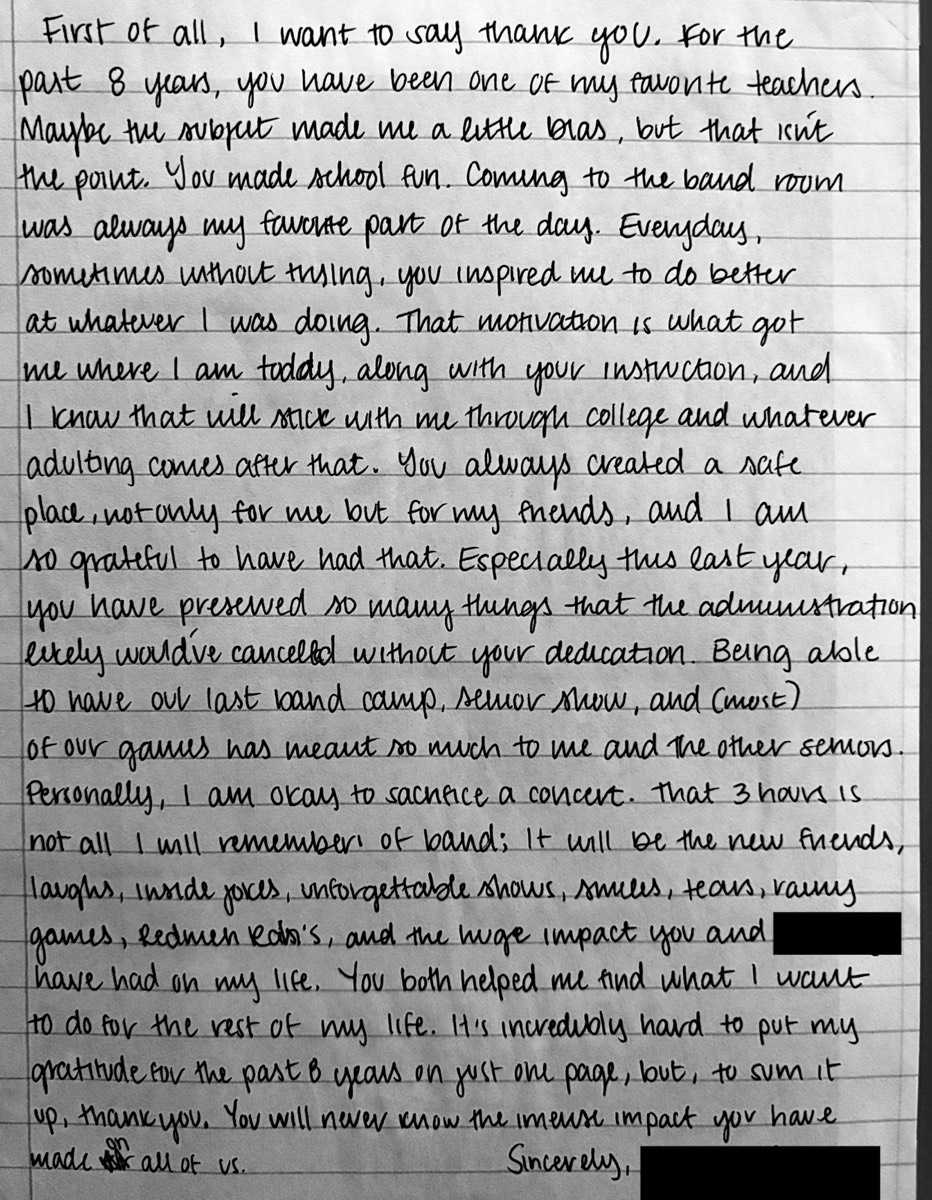 First of all, I want to say thank you. For the
past 8 years, you have been one of my favorite teachers.
Maybe the subject made me a little bias, but that isn't
the point. You made school fun. Coming to the band room
was always my favorite part of the day. Everyday,
sometimes without trying, you inspired me to do better
at whatever I was doing. That motivation is what got
me where I am today, along with your instruction, and
I know that will stick with me through college and whatever
adulting comes after that. You always created a safe
place, not only for me but for my friends, and I am
so grateful to have had that. Especially this last year,
you have preserved so many things that the administration
likely would've cancelled without your dedication. Being able
to have our last band camp, senior show, and (most)
of our games has meant so much to me and the other seniors.
Personally, I am okay to sacrifice a concert. That 3 hours is
not all I will remember of band; It will be the new friends,
laughs, inside jokes, unforgettable shows, smiles, tears, rainy
games, Redmen and the huge impact you and
have had on my life. You both helped me find what I want
to do for the rest of my life. It's incredibly hard to put my
gratitude for the past 8 years on just one page, but, to sum it
up, thank you. You will never know the imense impact you have
made on all of us. Sincerely,